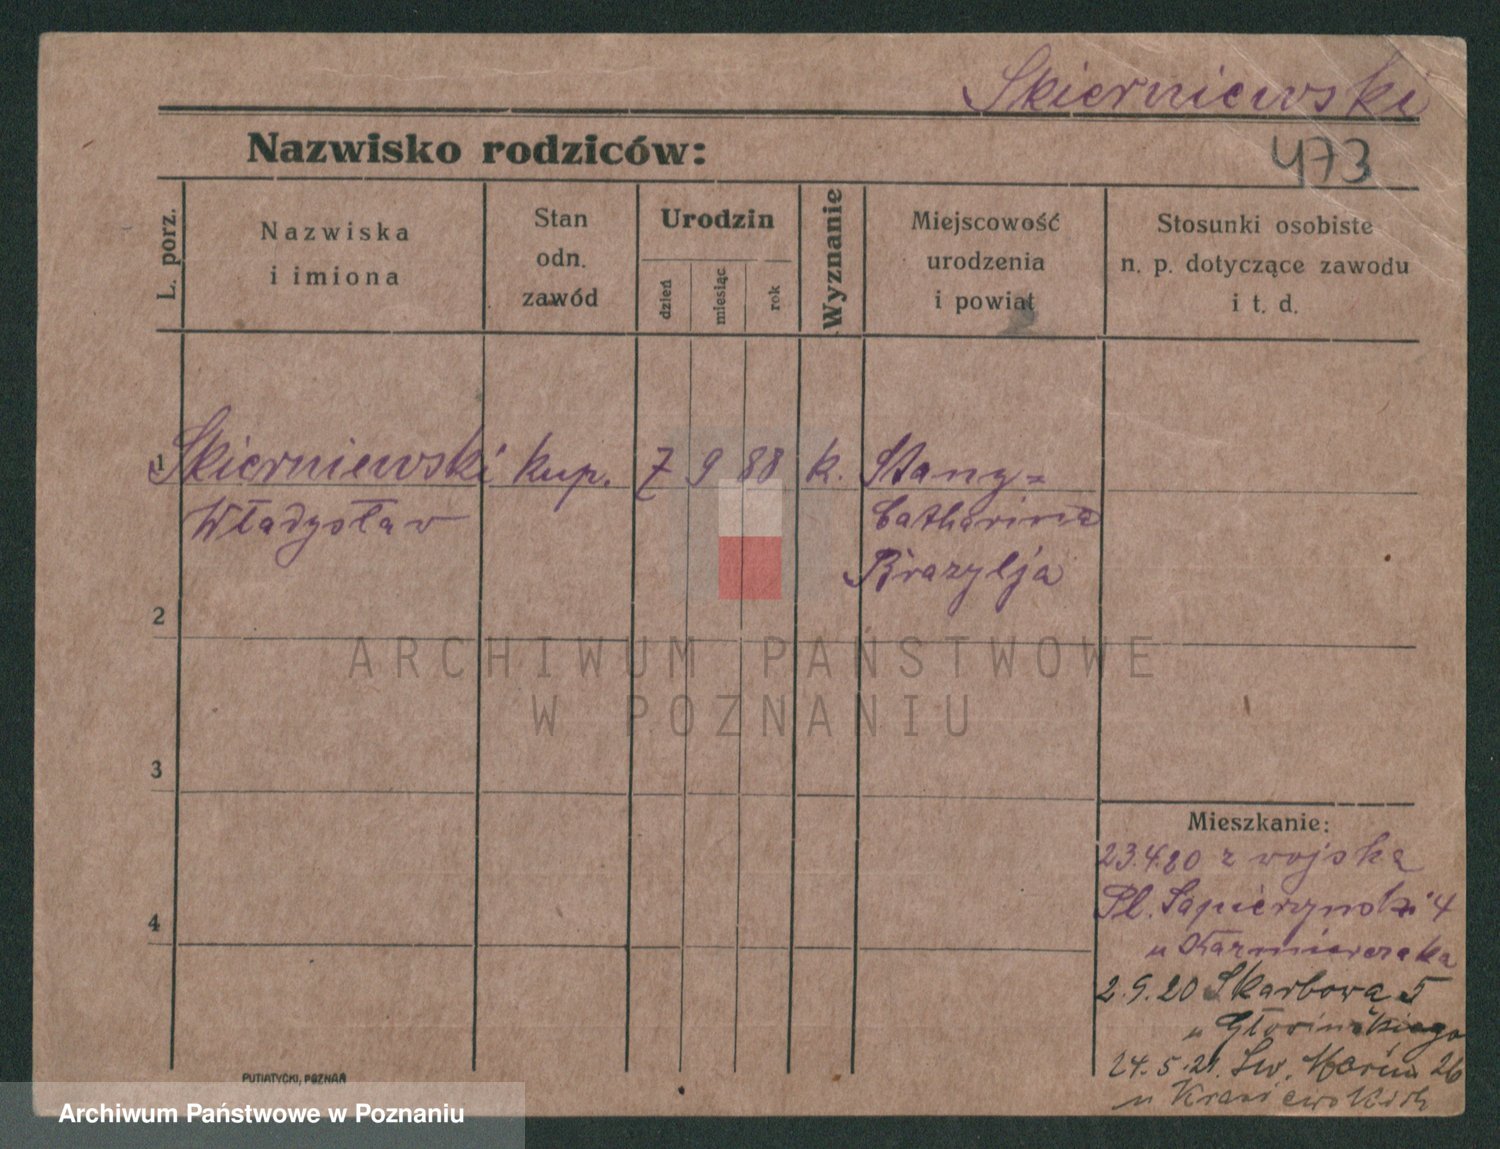 Skierniewski
Nazwisko rodziców:
473
L. porz.
Nazwiska
i imiona
Stan
odn.
zawód
Urodzin
dzień
miesiąc
rok
Wyznanie
Miejscowość
urodzenia
i powiat
Stosunki osobiste
n. p. dotyczące zawodu
i t. d.
1
Skierniewski kup. 7 9 88 k. Stany=
Władysław Catharina
Brazylja
2
ARCHIWUM PAŃSTWOWE
W POZNANIU
3
4
Mieszkanie:
23.4.20 z wojska
Pl. Sapieżyński 4
u Kaźmierczaka
2.9.20 Skarbowa 5
u
24.5.21. Św. Marcin 26
u
PUTIATYCKI, POZNAŃ
Archiwum Państwowe w Poznaniu